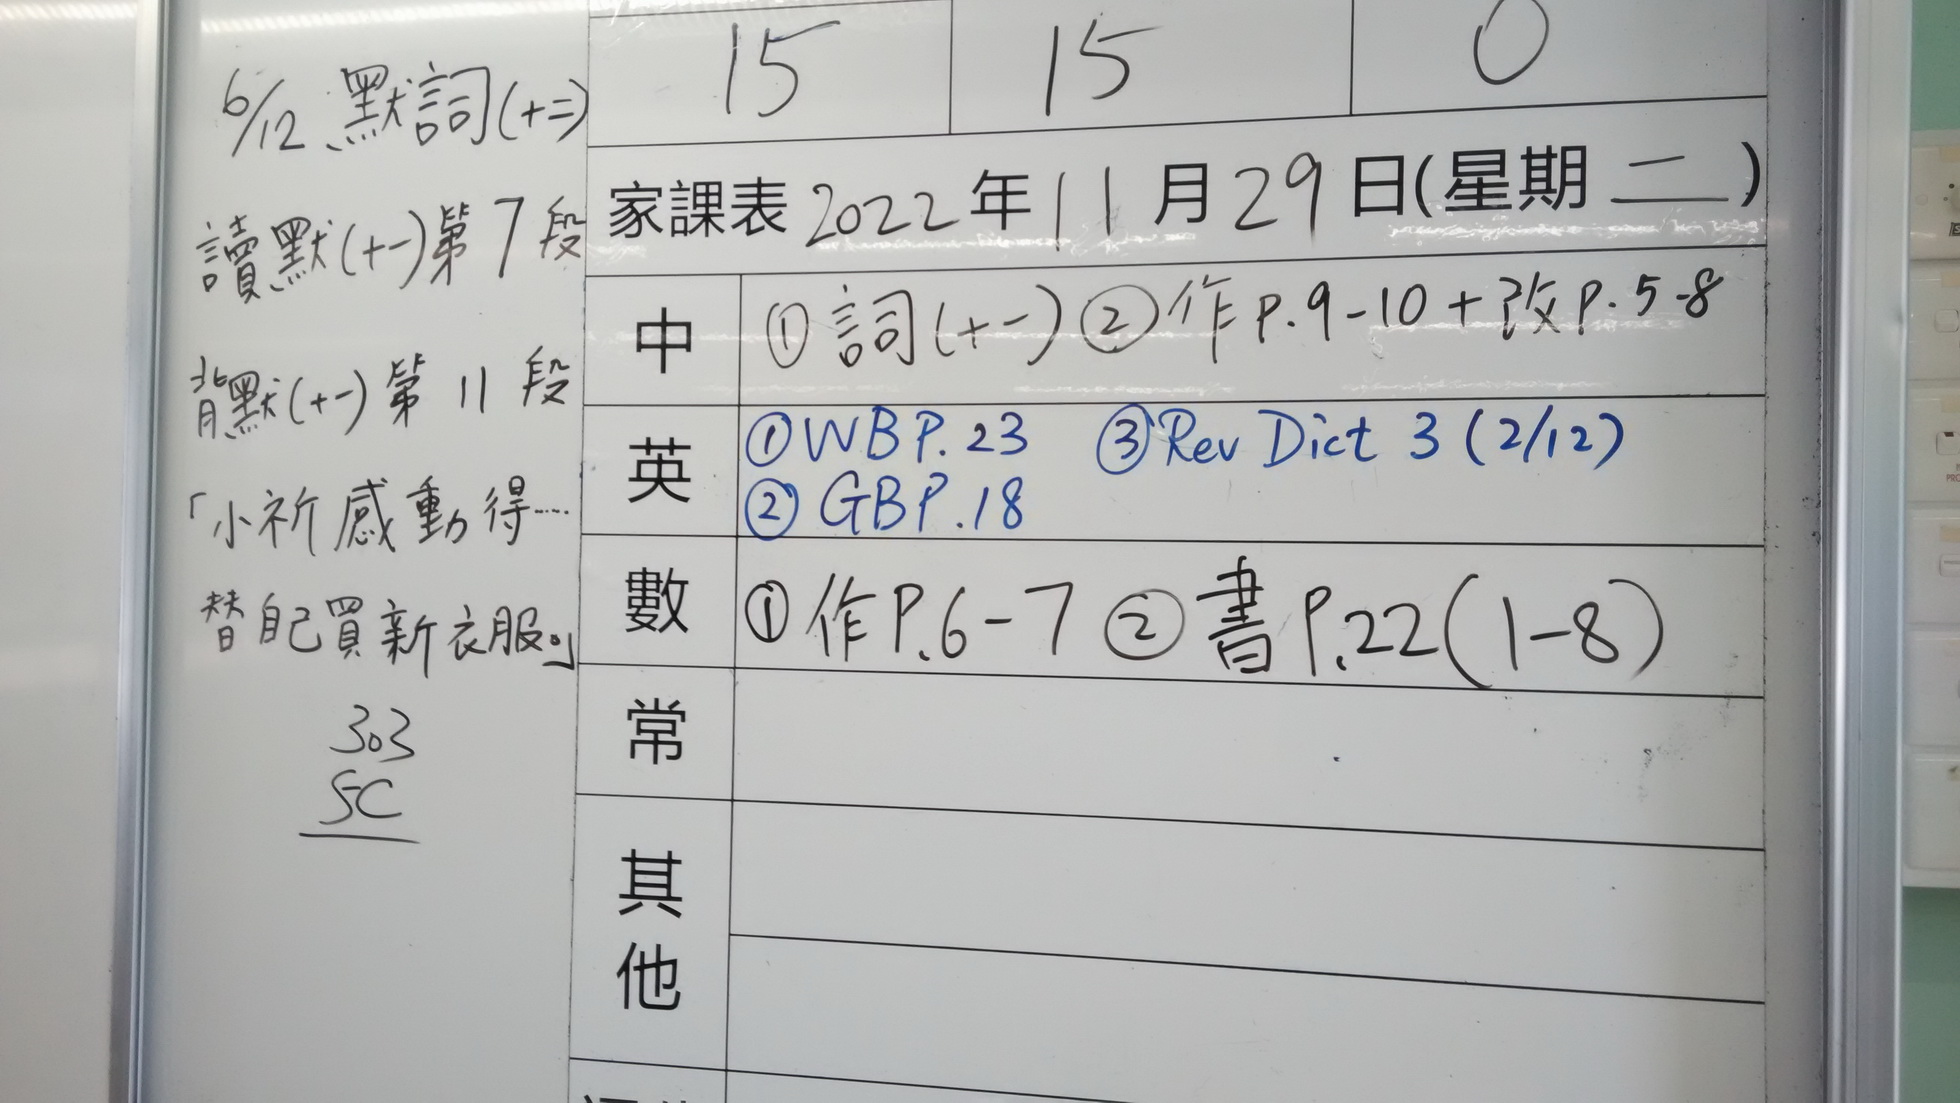 6/12 默詞(十二)
讀默(十一)第7段
背默(十一)第11段
「小祈感動得……
替自己買新衣服。」
303
5C
15 15 0
家課表 2022年11月29日(星期二)
中 ①詞(十一) ②作P.9-10+改P.5-8
英 ①WB P.23 ③Rev Dict 3 (2/12)
②GB P.18
數 ①作P.6-7 ②書P.22(1-8)
常
其他